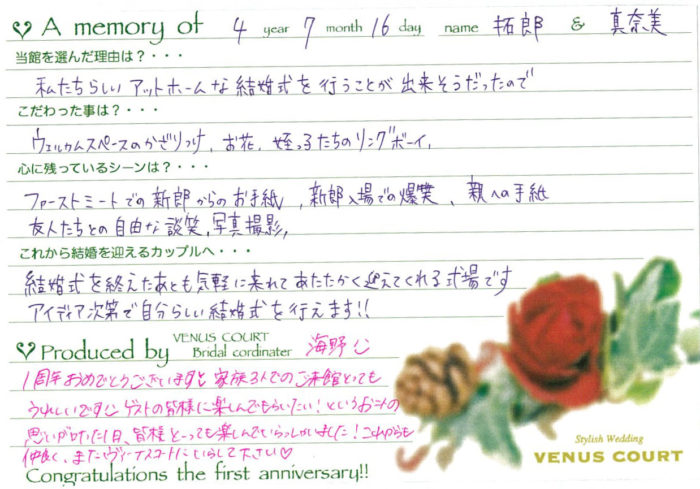 A memory of 4 year 7 month 16 day name 拓郎 & 真奈美
当館を選んだ理由は？・・・
私たちらしい アットホームな結婚式を行うことが出来そうだったので
こだわった事は？・・・
ウェルカムスペースのかざりつけ、お花、姪っ子たちのリングボーイ、
心に残っているシーンは？・・・
ファーストミートでの新郎からのお手紙、新郎入場での爆笑、親への手紙
友人たちとの自由な談笑、写真撮影、
これから結婚を迎えるカップルへ・・・
結婚式を終えたあとも気軽に来れてあたたかく迎えてくれる式場です
アイディア次第で自分らしい結婚式を行えます!!
Produced by VENUS COURT Bridal cordinater 海野
1周年おめでとうございます 家族3人でのご来館とっても
うれしいです ゲストの皆様に楽しんでもらいたい！というお二人の
思いが 1日、皆様とっても楽しんでいらっしゃいました！これからも
仲良く、またヴィーナスコートにいらして下さい♡
Congratulations the first anniversary!!
Stylish Wedding
VENUS COURT